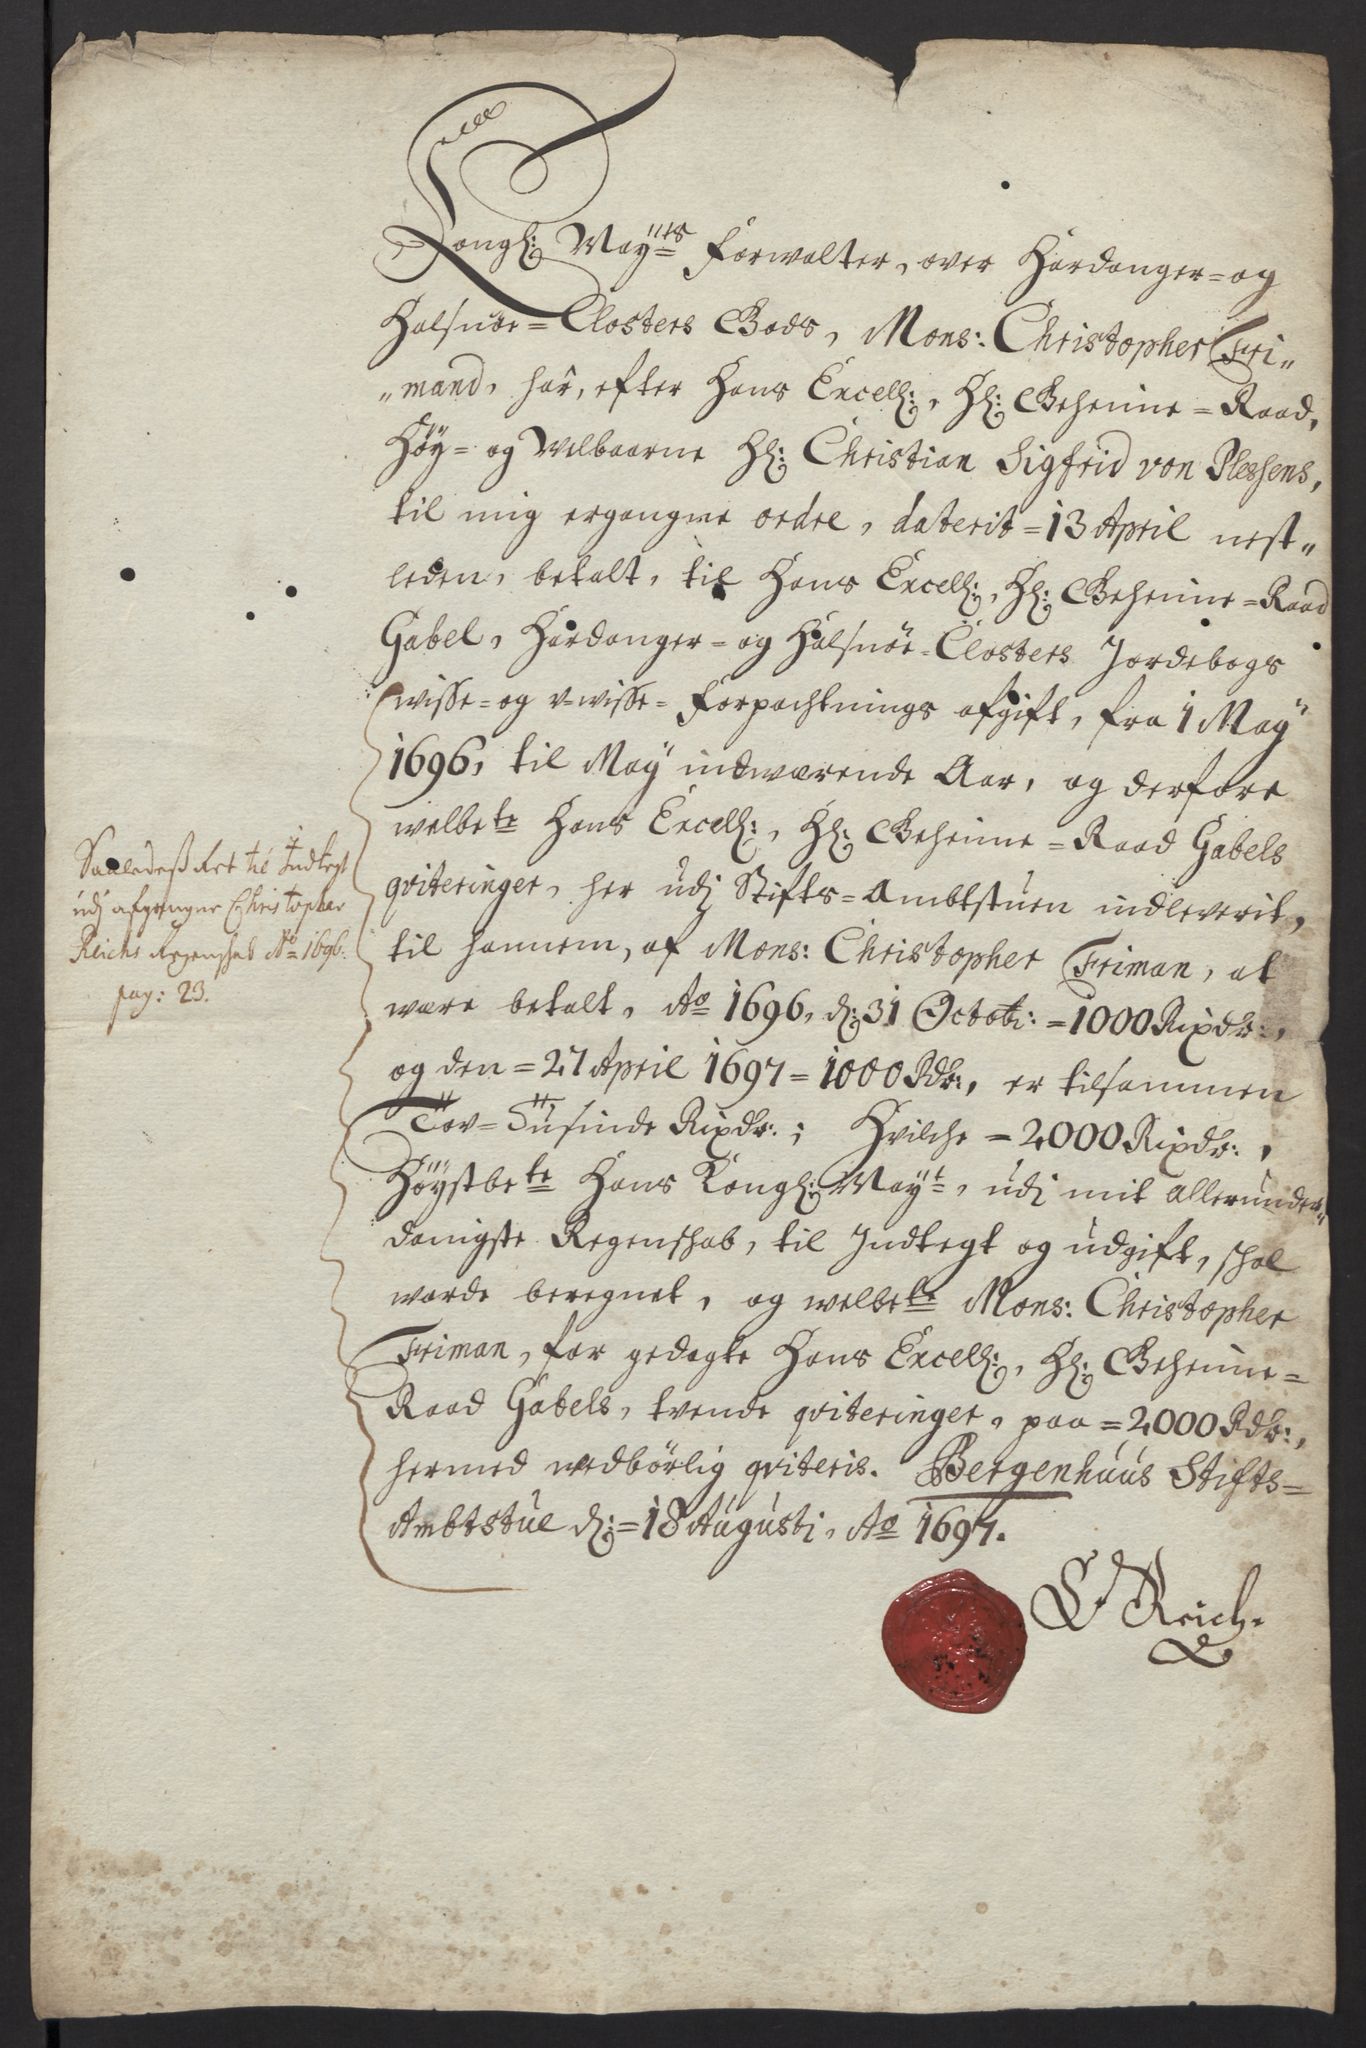 Kongl: May:ts Forwalter, over Hardanger= og
Halsnöe= Closters Gods, Mons: Christopher Fri„
„mand, har, efter Hans Excell:, Hr: Geheime=Raad,
Höy= og Welbaarne Hr: Christian Sigfrid von Plessens,
til mig ergangne ordre, daterit=13 April nest„
leden, betalt, til Hans Excell:, Hr: Geheime=Raad
Gabel, Hardanger= og Halsnöe=Closters Jordebogs
wisse= og v-wisse= Forpachtnings afgift, fra 1 May
1696, til May indwærende Aar, og derfore
welbete Hans Excell:, Hr: Geheime=Raad Gabels
qviteringer, her udj Stifts=Ambtstuen indleverit,
til hannem, af Mons: Christopher Friman, at
være betalt, Ao 1696, d: 31 Octob: =1000 Rixdr:,
og den =27 April 1697 =1000 Rdr:, er tilsammen
Tov=Tusinde Rixdr:; Hvilche =2000 Rixdr:,
Höystbete Hans Kongl: Mayt, udi mit allerunder„
danigste Regenschab, til Indtegt og udgift, schal
worde beregnet, og welbete Mons: Christopher
Friman, for gedagte Hans Excell:, Hr: Geheime=
Raad Gabels, tvende qviteringer, paa =2000 Rdr:,
hermed wedbörlig qviteris. Bergenhuus Stifts=
Ambtstue d:=18 Augusti, Ao 1697.
Reich.
Saaledeß ført til Indtegt
udj afgangne Christopher
Reichs Regenschab Ao 1696.
pag: 23.